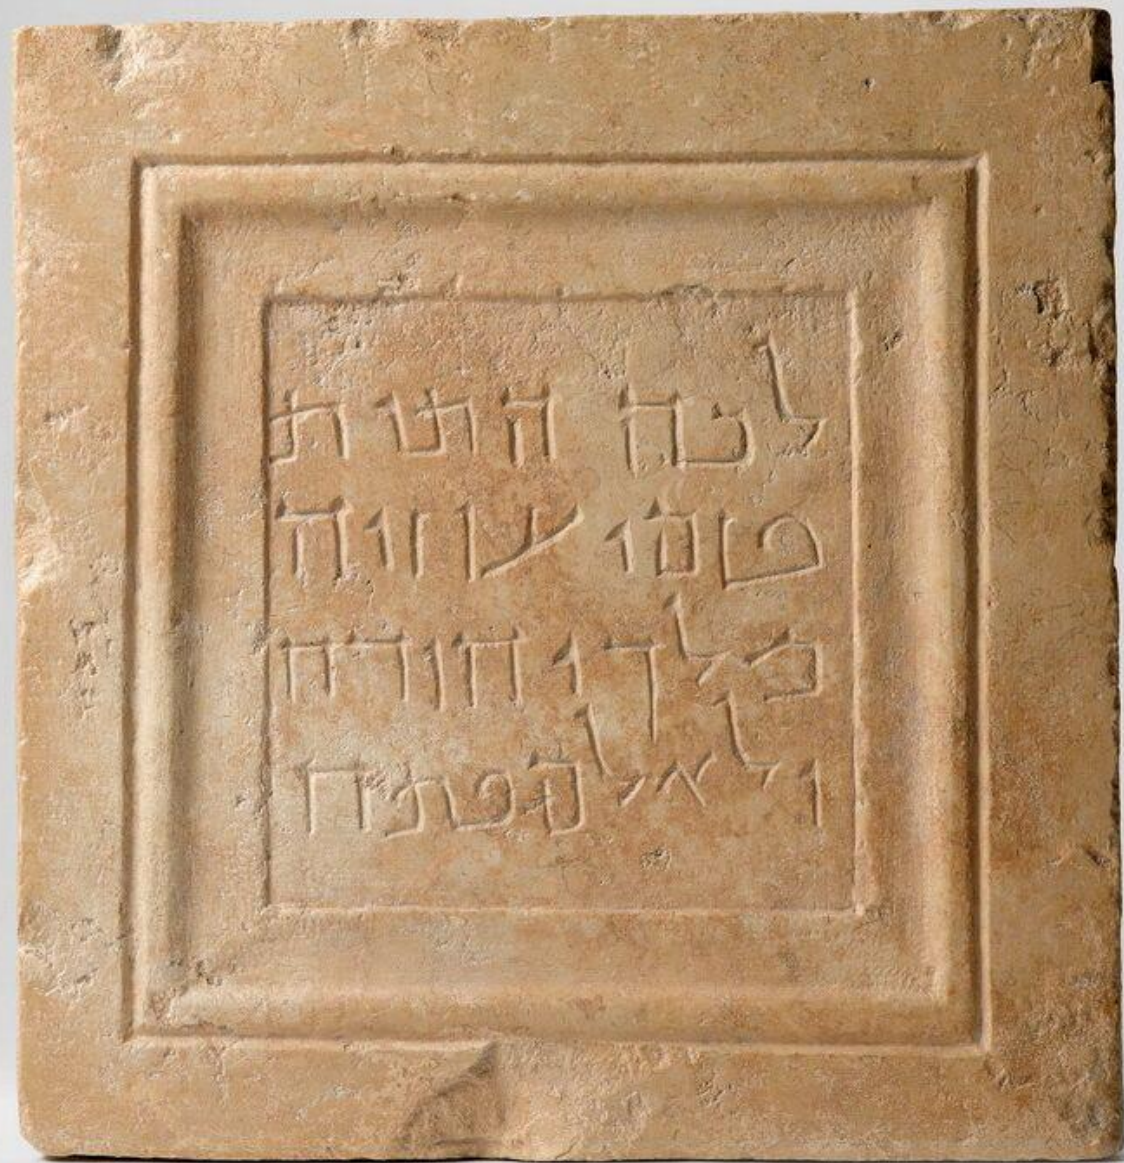 לכה התית
טמי עוזיה
מלך יהודה
ולא למפתח